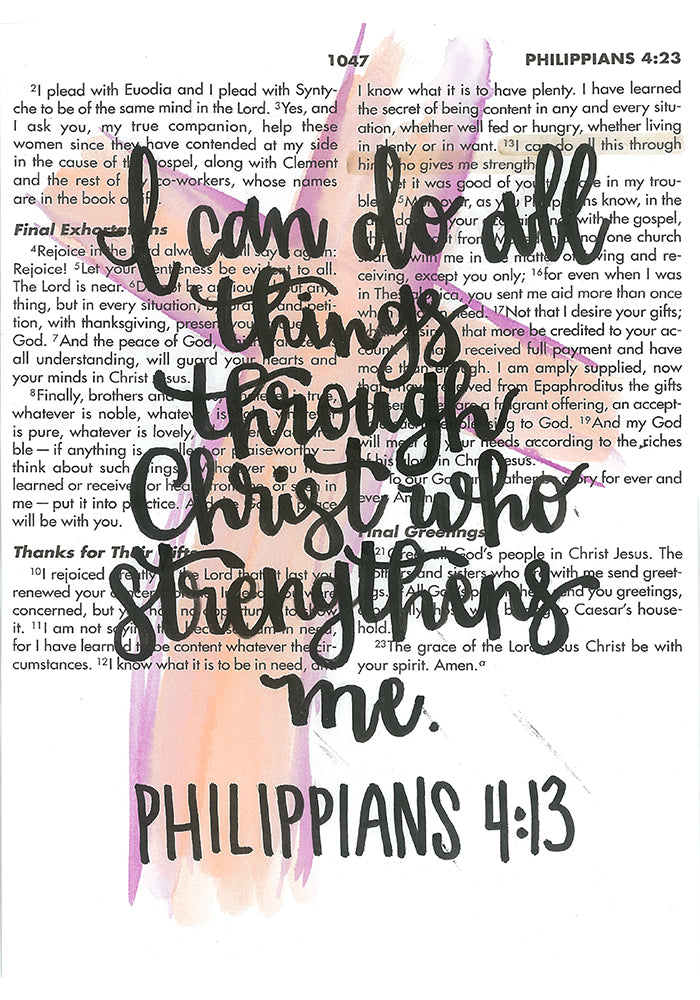 1047
PHILIPPIANS 4:23
2I plead with Euodia and I plead with Synty-
che to be of the same mind in the Lord. 3Yes, and
I ask you, my true companion, help these
women since they have contended at my side
in the cause of the gospel, along with Clement
and the rest of my co-workers, whose names
are in the book of life.
Final Exhortations
4Rejoice in the Lord always. I will say it again:
Rejoice! 5Let your gentleness be evident to all.
The Lord is near. 6Do not be anxious about any-
thing, but in every situation, by prayer and peti-
tion, with thanksgiving, present your
God. 7And the peace of God, which
all understanding, will guard your hearts and
your minds in Christ Jesus.
8Finally, brothers and is true,
whatever is noble, whatever is
is pure, whatever is lovely,
ble — if anything is or praiseworthy —
think about such things. 9Whatever you have
learned or received or heard from me, or seen in
me — put it into practice. And the God of peace
will be with you.
Thanks for Their Gifts
10I rejoiced greatly in the Lord that at last you
renewed your concern Indeed, you were
concerned, but you had no opportunity to show
it. 11I am not saying this because I am in need,
for I have learned to be content whatever the cir-
cumstances. 12I know what it is to be in need, and
I know what it is to have plenty. I have learned
the secret of being content in any and every situ-
ation, whether well fed or hungry, whether living
in plenty or in want. 13I can do all this through
him who gives me strength.
Yet it was good of you to share in my trou-
15Moreover, as you Philippians know, in the
your with the gospel,
from not one church
shared with me in the matter of giving and re-
ceiving, except you only; 16for even when I was
in Thessalonica, you sent me aid more than once
need. 17Not that I desire your gifts;
that more be credited to your ac-
received full payment and have
more than enough. I am amply supplied, now
that I have received from Epaphroditus the gifts
fragrant offering, an accept-
to God. 19And my God
will meet all your needs according to the riches
of his glory in Christ Jesus.
To our God and Father be glory for ever and
ever. Amen.
Final Greetings
21Greet all God's people in Christ Jesus. The
brothers and sisters who are with me send greet-
ings. 22All God's people here send you greetings,
especially those who belong to Caesar's house-
hold.
23The grace of the Lord Jesus Christ be with
your spirit. Amen.a
I can do all
things
through
Christ who
strengthins
me.
PHILIPPIANS 4:13